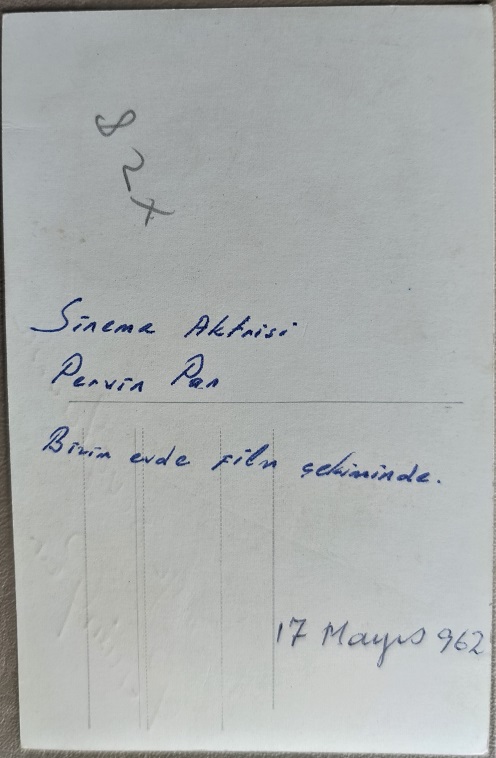 827
Sinema Aktrisi
Pervin Par
Bizim evde film çekiminde.
17 Mayıs 962